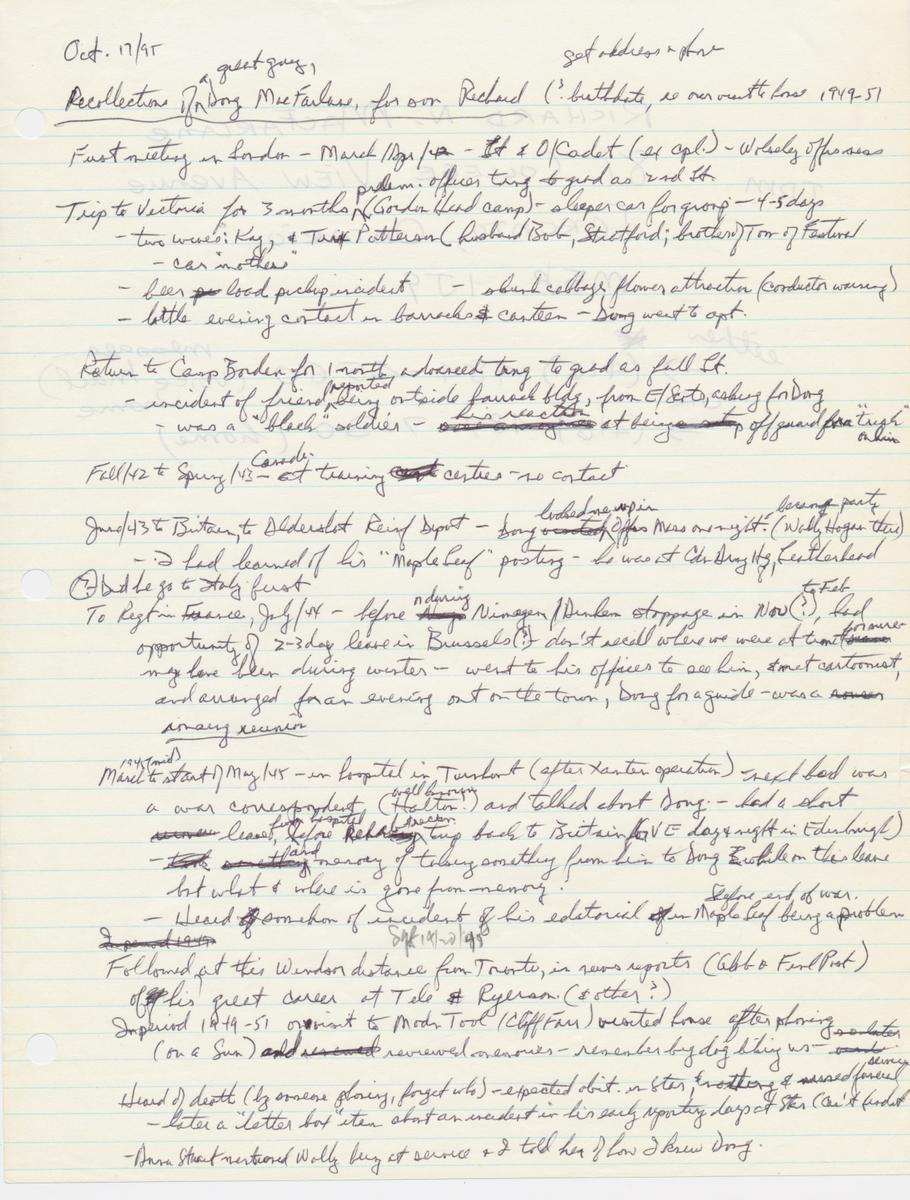 Oct. 17/95
a great guy,
get address & phone
Recollections of Doug MacFarlane, for son Richard (? birthdate, re our visit to house 1949-51
First meeting in London - March/Apr/42 - Lt & O/Cadet (ex cpl.) - Wolseley offrs mess
prelim. officer trng to grad as 2nd Lt.
Trip to Victoria for 3 months (Gordon Head camp) - sleeper car for group - 4-5 days
- two wives: Kay, & Patterson (husband Bob, Stratford; brother of Tom of Festival
- car "mothers"
- beer load pickup incident - skunk cabbage flower attraction (conductor warning)
- little evening contact in barracks & canteen - Doug went to apt.
Return to Camp Borden for 1 month advanced trng to grad as full Lt.
- incident of friend reported being outside barrack bldg, from E/Scots, asking for Doug
- was a "black" soldier - his reaction at being off guard for a "trick" on him
Fall/42 to Spring/43 - at Canada. training centres - no contact
June/43 to Britain, to Aldershot Reinf Depot - Doug looked me up in Offrs Mess one night. became party (Wally Hogan there)
- I had learned of his "Maple Leaf" posting - he was at Cdn Army Hq, Leatherhead
(?) Did he go to Italy first
To Regt in France, July/44 - before n during Nimegen/Dunken stoppage in Nov (?) to Feb, had
opportunity of 2-3 day leave in Brussels (?) don't recall where we were at time
may have been during winter - went to his offices to see him, & met cartoonist,
and arranged for an evening out on the town, Doug for a guide - was a
rousing reunion
1945 (mid)
March to start of May/45 - in hospital in Turnhout (after Xanten operation) - next bed was
a war correspondent, well known (Halton?) and talked about Doug. - had a short
leave, from hospital before trip back to Britain (VE day & night in Edinburgh)
- and memory of taking something from him to Doug while on this leave
but what & where is gone from memory.
- Heard somehow of incident of his editorial in Maple Leaf being a problem before end of war.
In period 1949
Sept 19/20/95
Followed, at this Windsor distance from Toronto, in news reports (Globe & Finl Post)
of his great career at Tele & Ryerson. (& other?)
In period 1949-51 on visit to Modn Tool (Cliff Farr) visited house after phoning
(on a Sun) reviewed memories - remember big dog biting us -
Heard of death (by someone phoning, forget who) - expected obit. in Star & nothing & missed funeral service
- later a "letter box" item about an incident in his early reporting days at Star (can't find it
- Anna Stuart mentioned Wally being at service & I told her of how I knew Doug.